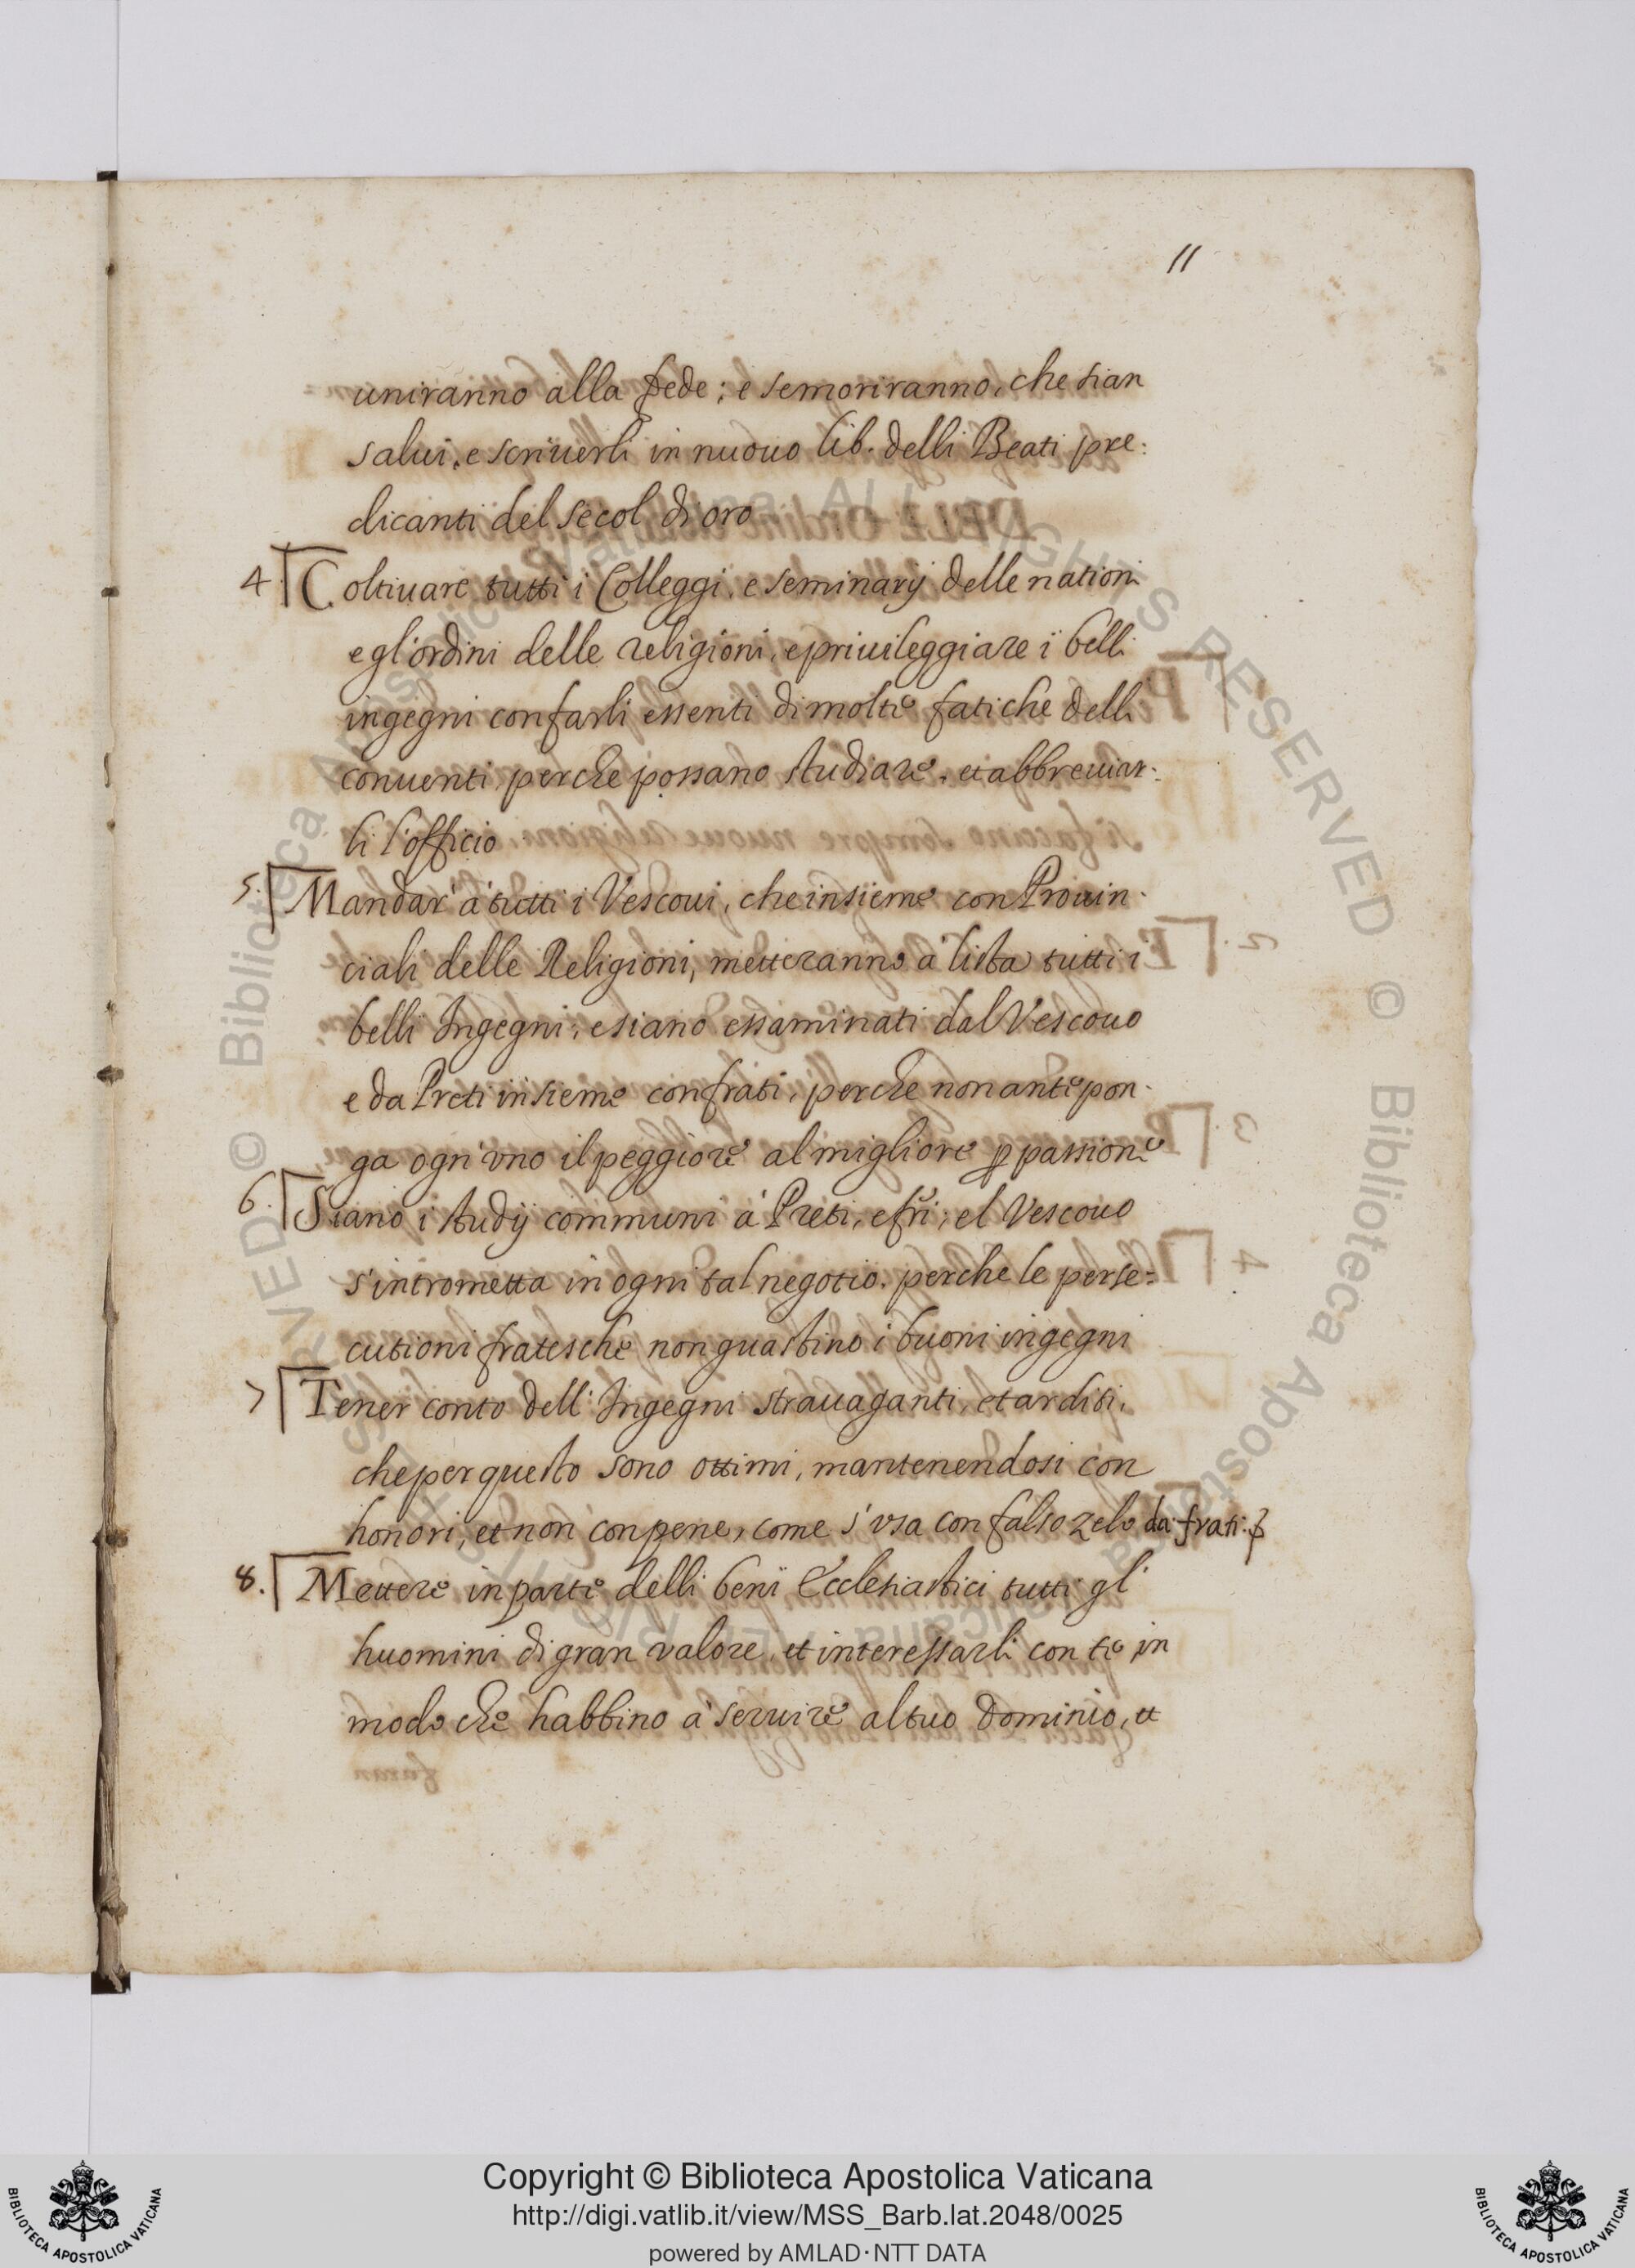 11
uniranno alla fede; e se moriranno, che sian
salui, e scriuerli in nuouo lib. delli Beati pre:
dicanti del secol di oro
4 Coltiuare tutti i Colleggi, e seminarij delle nationi
e gl'ordini delle religioni, e priuileggiare i belli
ingegni con farli essenti di molte fatiche delli
conuenti, perche possano studiare, et abbreuiar:
li l'officio
5. Mandar à tutti i Vescoui, che insieme con Prouin-
ciali delle Religioni, metteranno à lista tutti i
belli Ingegni, e siano essaminati dal Vescouo
e da Preti insieme con frati, perche non antepon-
ga ogn'vno il peggiore al migliore ꝑ passione
6. Siano i studij communi à Preti, e fr̃i, el Vescouo
s'intrometta in ogni tal negotio, perche le perse=
cutioni fratesche non guastino i buoni ingegni
7 Tener conto dell'Ingegni strauaganti, et arditi,
che per questo sono ottimi, mantenendosi con
honori, et non con pene, come s'vsa con falso zelo da frati
8. Mettere in parte delli beni Ecclesiastici tutti gl'
huomini di gran valore, et interessarli con te in
modo che habbino à seruire al tuo dominio, et
Copyright © Biblioteca Apostolica Vaticana
http://digi.vatlib.it/view/MSS_Barb.lat.2048/0025
powered by AMLAD·NTT DATA
BIBLIOTECA APOSTOLICA VATICANA
BIBLIOTECA APOSTOLICA VATICANA